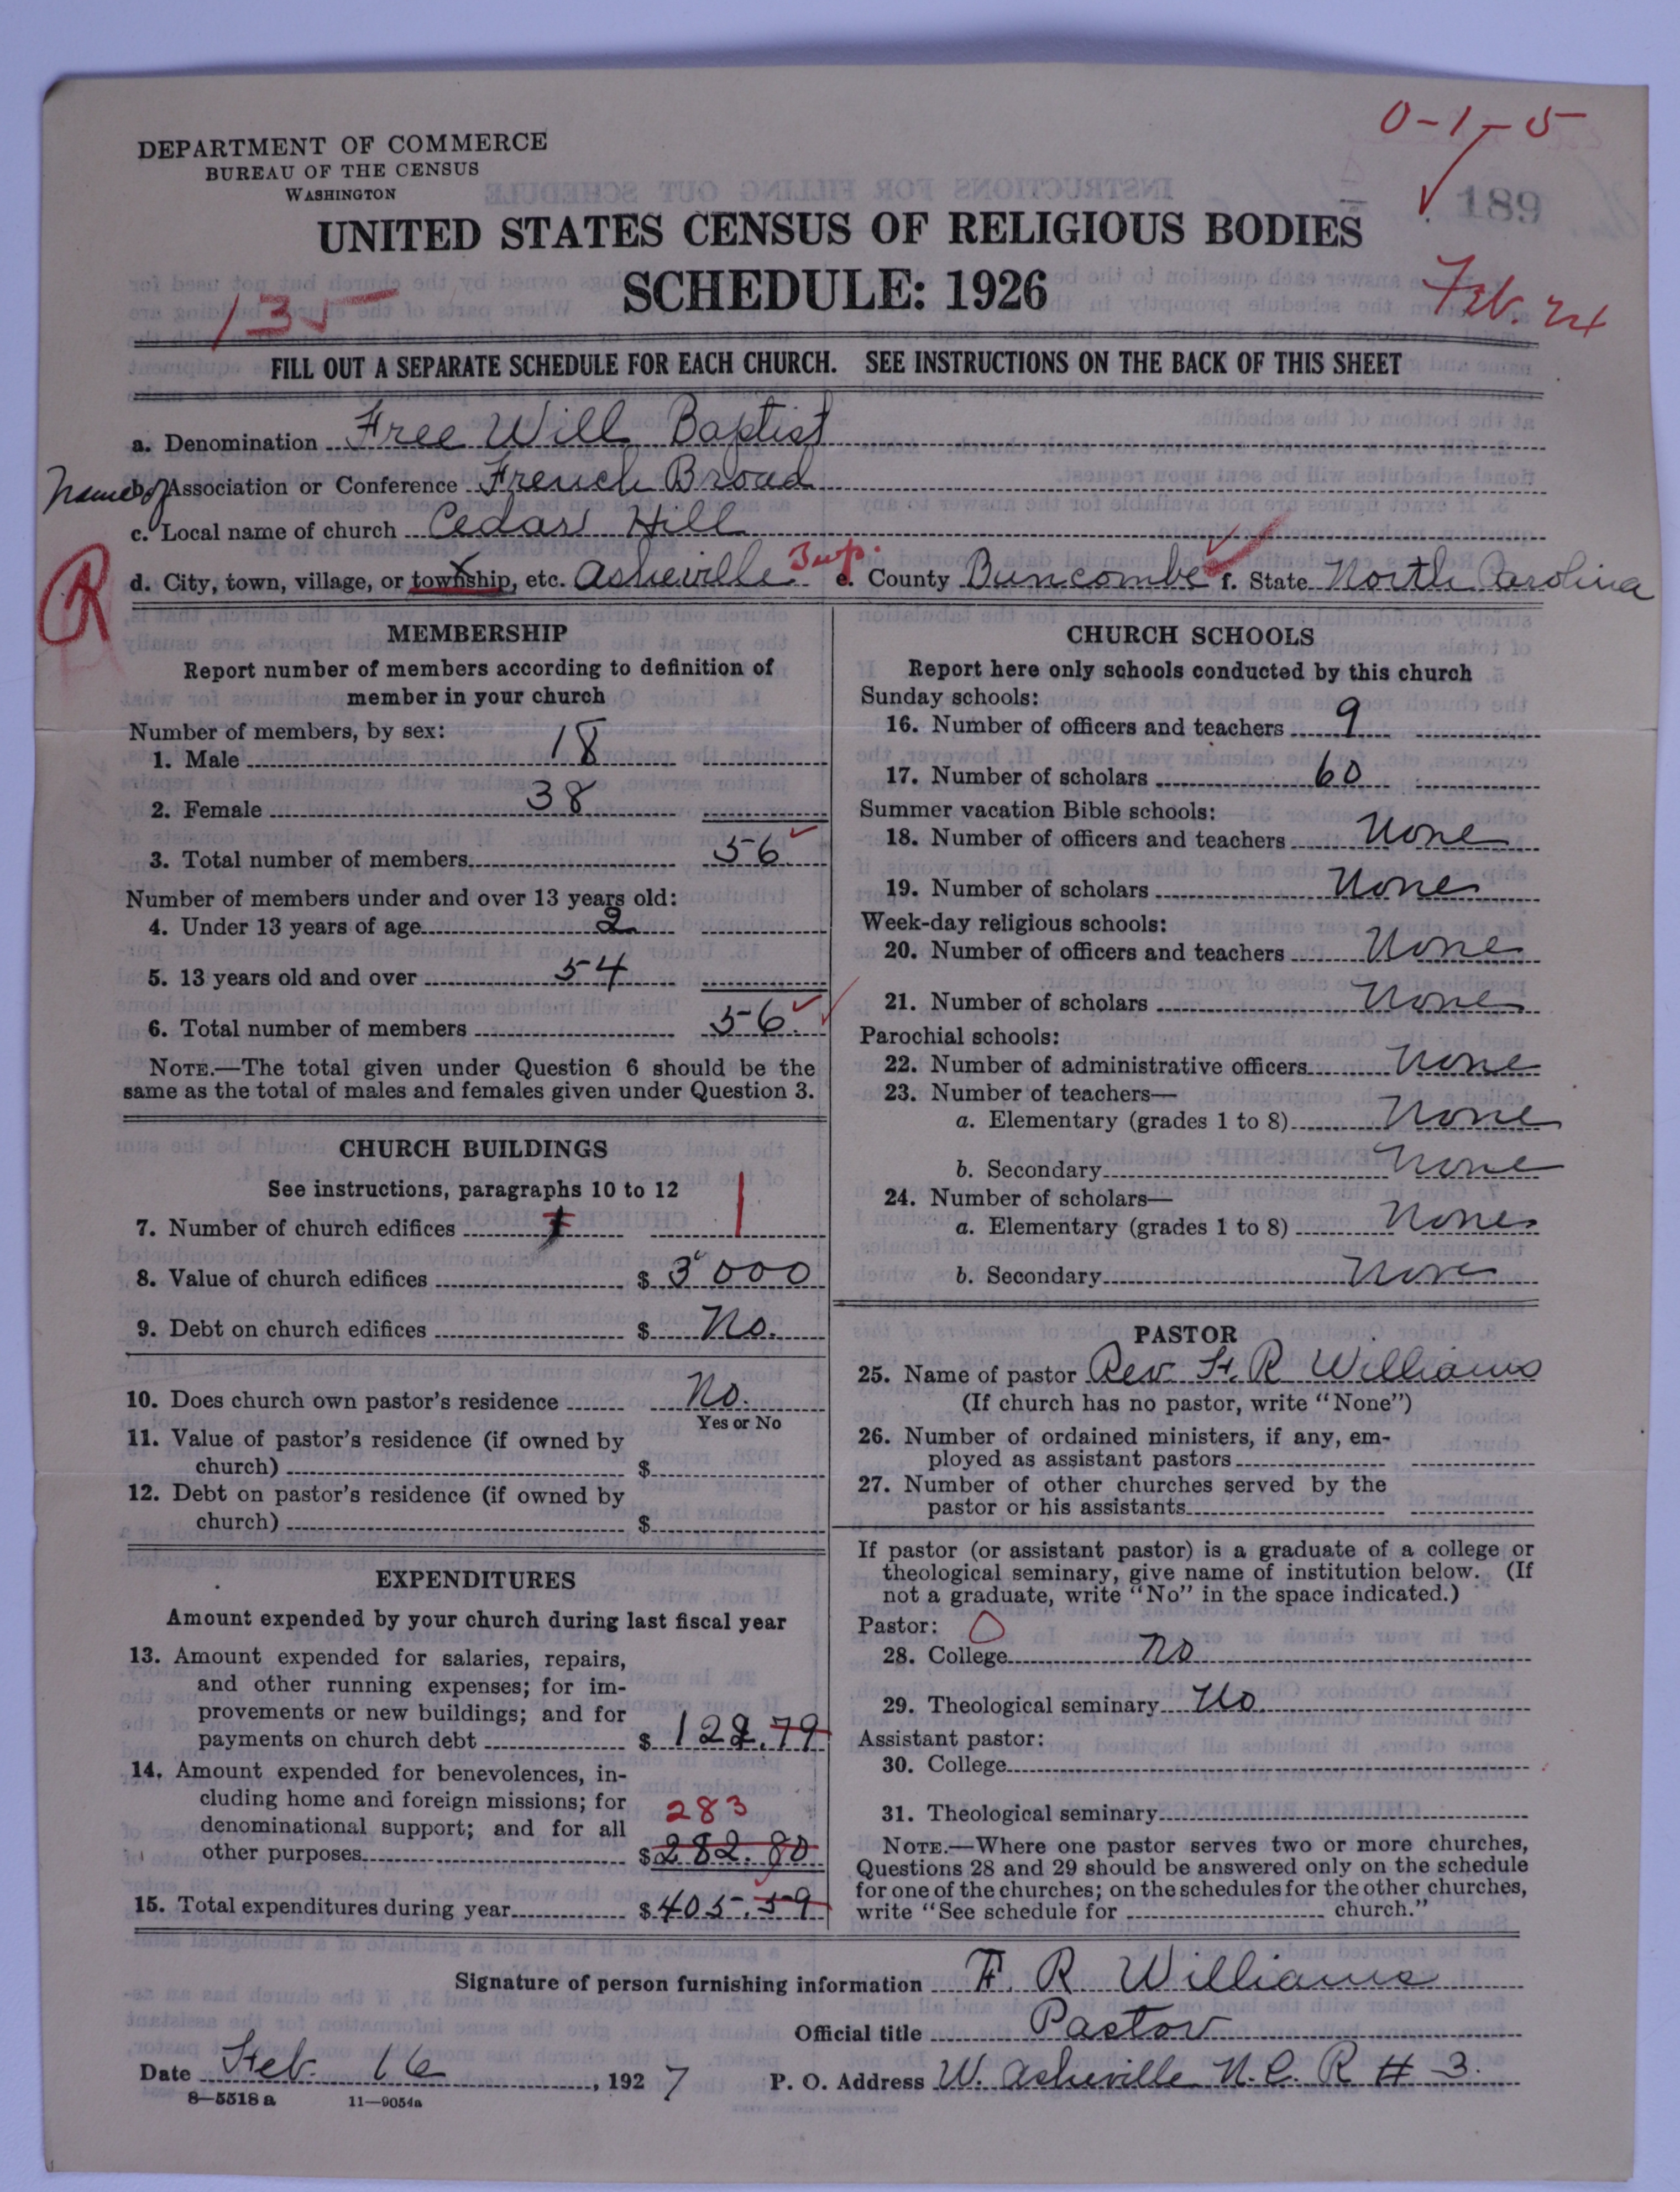 0-1-5
DEPARTMENT OF COMMERCE
BUREAU OF THE CENSUS
WASHINGTON
189
UNITED STATES CENSUS OF RELIGIOUS BODIES
SCHEDULE: 1926
135
Feb. 24
FILL OUT A SEPARATE SCHEDULE FOR EACH CHURCH. SEE INSTRUCTIONS ON THE BACK OF THIS SHEET
a. Denomination Free Will Baptist
Name of b. Association or Conference French Broad
c. Local name of church Cedar Hill
R
d. City, town, village, or township, etc. Asheville Twp. e. County Buncombe f. State North Carolina
MEMBERSHIP
Report number of members according to definition of
member in your church
Number of members, by sex:
1. Male 18
2. Female 38
3. Total number of members 56
Number of members under and over 13 years old:
4. Under 13 years of age 2
5. 13 years old and over 54
6. Total number of members 56
NOTE.—The total given under Question 6 should be the
same as the total of males and females given under Question 3.
CHURCH BUILDINGS
See instructions, paragraphs 10 to 12
7. Number of church edifices 1 1
8. Value of church edifices $ 3000
9. Debt on church edifices $ No.
10. Does church own pastor's residence No.
Yes or No
11. Value of pastor's residence (if owned by
church) $
12. Debt on pastor's residence (if owned by
church) $
EXPENDITURES
Amount expended by your church during last fiscal year
13. Amount expended for salaries, repairs,
and other running expenses; for im-
provements or new buildings; and for
payments on church debt $ 122.79
14. Amount expended for benevolences, in-
cluding home and foreign missions; for
denominational support; and for all 283
other purposes $ 282.80
15. Total expenditures during year $ 405.59
CHURCH SCHOOLS
Report here only schools conducted by this church
Sunday schools:
16. Number of officers and teachers 9
17. Number of scholars 60
Summer vacation Bible schools:
18. Number of officers and teachers None
19. Number of scholars None
Week-day religious schools:
20. Number of officers and teachers None
21. Number of scholars None
Parochial schools:
22. Number of administrative officers None
23. Number of teachers—
a. Elementary (grades 1 to 8) None
b. Secondary None
24. Number of scholars—
a. Elementary (grades 1 to 8) None
b. Secondary None
PASTOR
25. Name of pastor Rev. F. R Williams
(If church has no pastor, write "None")
26. Number of ordained ministers, if any, em-
ployed as assistant pastors
27. Number of other churches served by the
pastor or his assistants
If pastor (or assistant pastor) is a graduate of a college or
theological seminary, give name of institution below. (If
not a graduate, write "No" in the space indicated.)
Pastor: 0
28. College No
29. Theological seminary No
Assistant pastor:
30. College
31. Theological seminary
NOTE.—Where one pastor serves two or more churches,
Questions 28 and 29 should be answered only on the schedule
for one of the churches; on the schedules for the other churches,
write "See schedule for church."
Signature of person furnishing information F. R. Williams
Official title Pastor
Date Feb. 16, 1927 P. O. Address W. Asheville N.C. R # 3.
8—5518 a 11—9054a